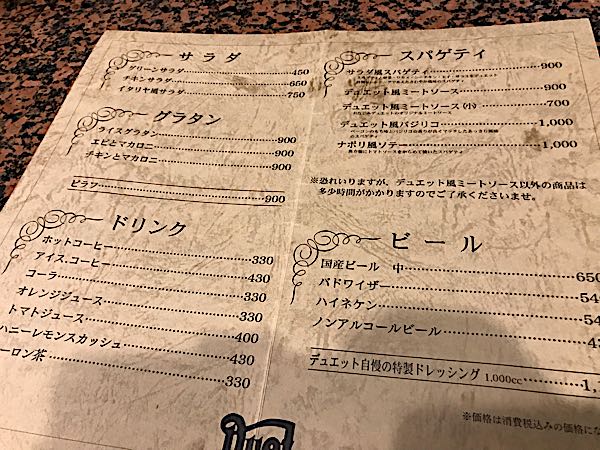 サラダ
グリーンサラダ 450
チキンサラダ 650
イタリヤ風サラダ 750
グラタン
ライスグラタン 900
エビとマカロニ 900
チキンとマカロニ 900
ピラフ 900
ドリンク
ホットコーヒー 330
アイスコーヒー 430
コーラ 330
オレンジジュース 330
トマトジュース 400
ハニーレモンスカッシュ 430
ーロン茶 330
スパゲティ
サラダ風スパゲティ 900
デュエット風ミートソース 900
デュエット風ミートソース(小) 700
デュエット風バジリコ 1,000
ナポリ風ソテー 1,000
※恐れいりますが、デュエット風ミートソース以外の商品は
多少時間がかかりますのでご了承くださいませ。
ビール
国産ビール 中 650
バドワイザー 54
ハイネケン 54
ノンアルコールビール 43
デュエット自慢の特製ドレッシング 1,000cc 1,
※価格は消費税込みの価格にな
Duet